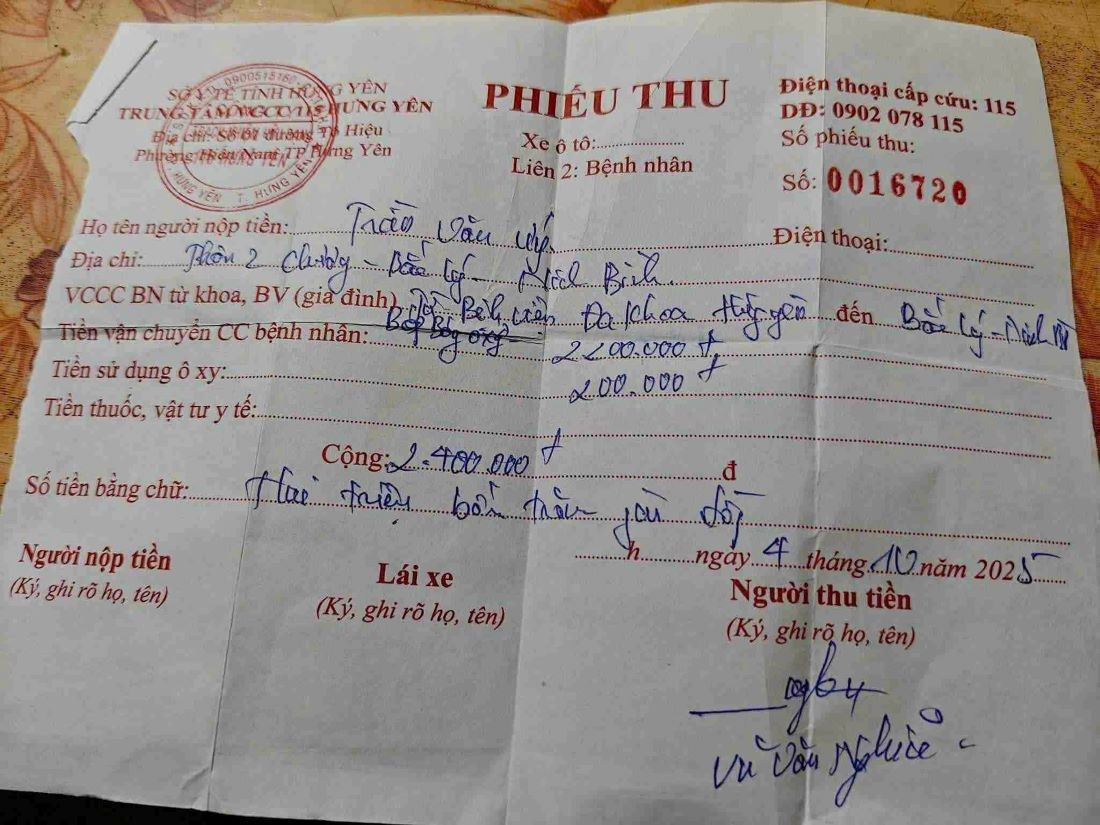 SỞ Y TẾ TỈNH HƯNG YÊN
TRUNG TÂM VCCC 115 HƯNG YÊN
Địa chỉ: Số 01 đường Tô Hiệu
Phường Hiến Nam, TP Hưng Yên
HƯNG YÊN T. HƯNG YÊN
PHIẾU THU
Xe ô tô:
Liên 2: Bệnh nhân
Điện thoại cấp cứu: 115
DĐ: 0902 078 115
Số phiếu thu:
Số: 0016720
Họ tên người nộp tiền: Trần Văn Điện thoại:
Địa chỉ: Thôn 2 - Bắc Lý - Ninh Bình
VCCC BN từ khoa, BV (gia đình) Bệnh viện Đa khoa Hưng Yên đến Bắc Lý - Ninh
Tiền vận chuyển CC bệnh nhân: 2200.000 đ
Tiền sử dụng ô xy: 200.000 đ
Tiền thuốc, vật tư y tế:
Cộng: 2.400.000 đ đ
Số tiền bằng chữ: Hai triệu bốn trăm ngàn đồng
h ngày 4 tháng 10 năm 2025
Người nộp tiền
(Ký, ghi rõ họ, tên)
Lái xe
(Ký, ghi rõ họ, tên)
Người thu tiền
(Ký, ghi rõ họ, tên)
Vũ Văn